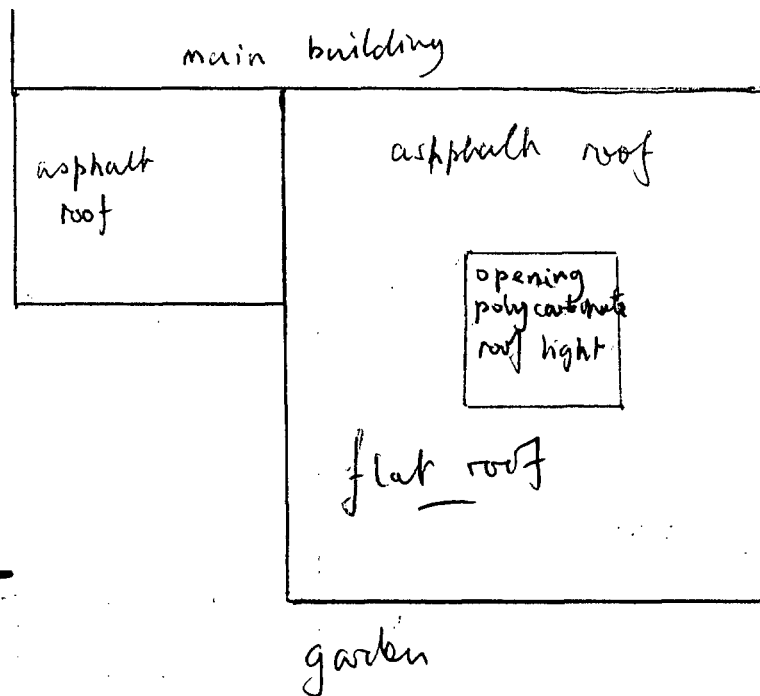 main building
asphalt
roof
aspphalt roof
opening
polycarbonate
roof light
flat roof
garden